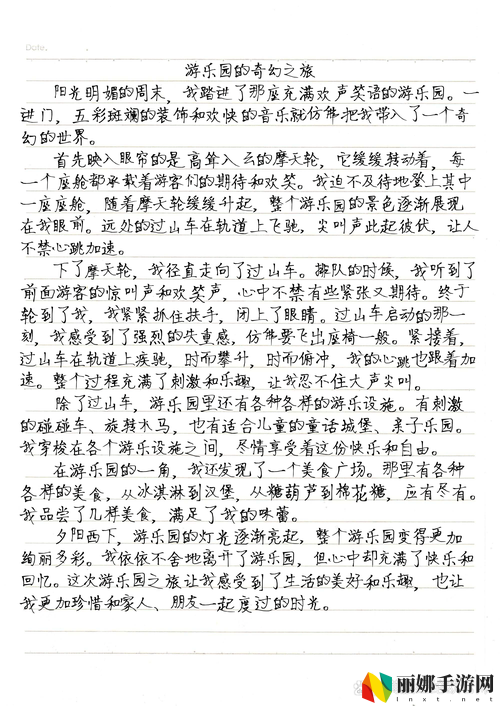 Date.
游乐园的奇幻之旅
阳光明媚的周末，我踏进了那座充满欢声笑语的游乐园。一
进门，五彩斑斓的装饰和欢快的音乐就仿佛把我带入了一个奇
幻的世界。
首先映入眼帘的是高耸入云的摩天轮，它缓缓转动着，每
一个座舱都承载着游客们的期待和欢笑。我迫不及待地登上其中
一座座舱，随着摩天轮缓缓升起，整个游乐园的景色逐渐展现
在我眼前。远处的过山车在轨道上飞驰，尖叫声此起彼伏，让人
不禁心跳加速。
下了摩天轮，我径直走向了过山车。排队的时候，我听到了
前面游客的惊叫声和欢笑声，心中不禁有些紧张又期待。终于
轮到了我，我紧紧抓住扶手，闭上了眼睛。过山车启动的那一
刻，我感受到了强烈的失重感，仿佛要飞出座椅一般。紧接着，
过山车在轨道上疾驰，时而攀升，时而俯冲，我的心跳也跟着加
速。整个过程充满了刺激和乐趣，让我忍不住大声尖叫。
除了过山车，游乐园里还有各种各样的游乐设施。有刺激
的碰碰车、旋转木马，也有适合儿童的童话城堡、亲子乐园。
我穿梭在各个游乐设施之间，尽情享受着这份快乐和自由。
在游乐园的一角，我还发现了一个美食广场。那里有各种
各样的美食，从冰淇淋到汉堡，从糖葫芦到棉花糖，应有尽有。
我品尝了几样美食，满足了我的味蕾。
夕阳西下，游乐园的灯光逐渐亮起，整个游乐园变得更加
绚丽多彩。我依依不舍地离开了游乐园，但心中却充满了快乐和
回忆。这次游乐园之旅让我感受到了生活的美好和乐趣，也让
我更加珍惜和家人、朋友一起度过的时光。
丽娜手游网
lnxt.net